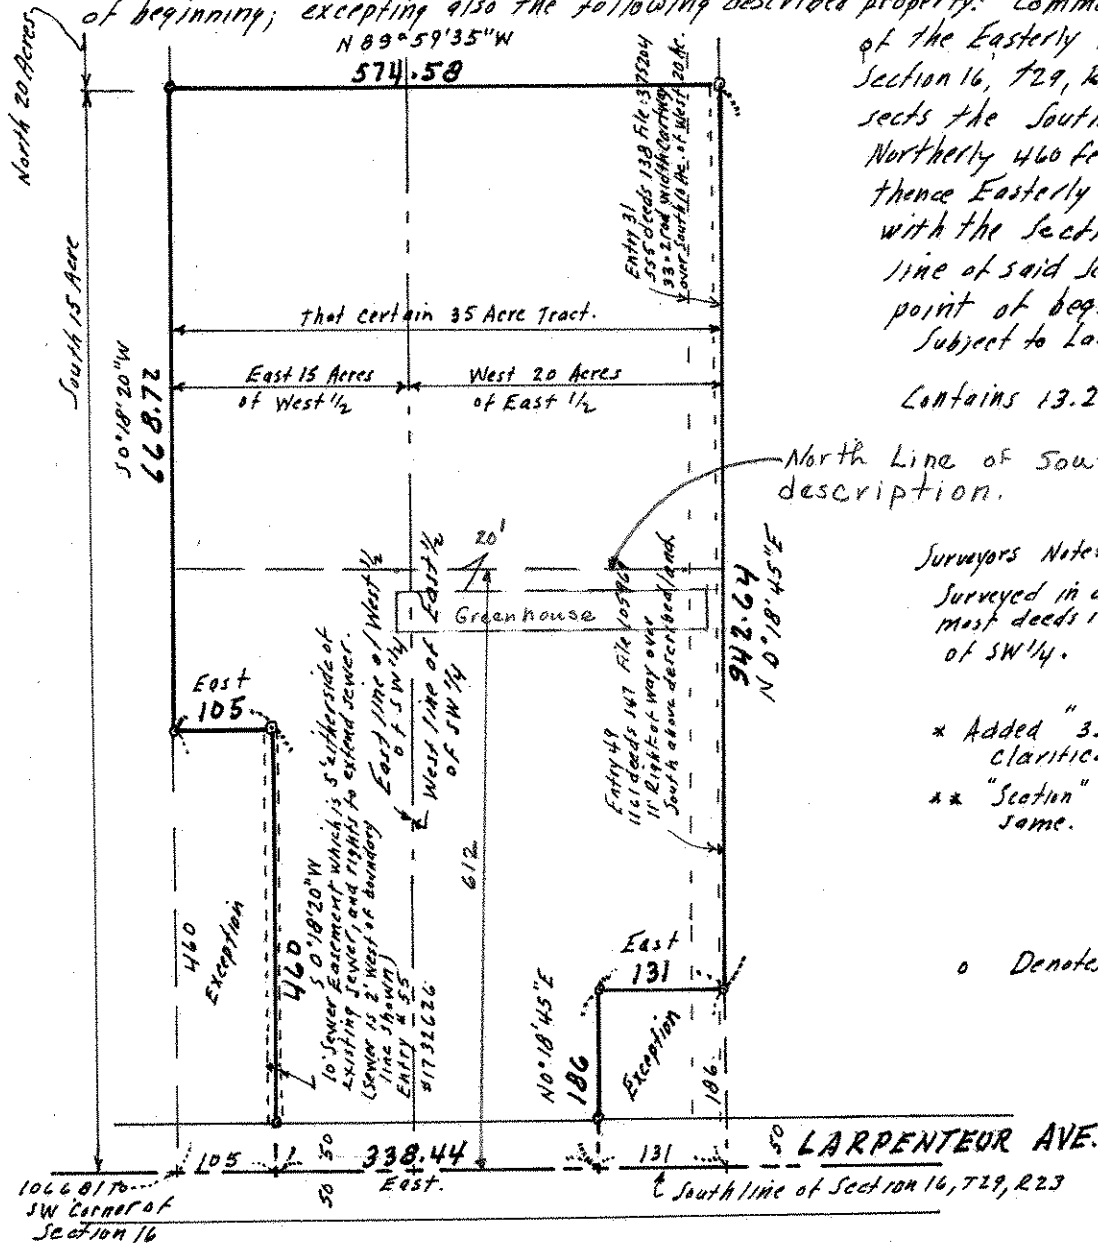 of beginning; excepting also the following described property: Comm
of the Easterly
Section 16, T29, R
sects the South
Northerly 460 fe
thence Easterly
with the Secti
line of said Se
point of beg
Subject to La
Contains 13.2
North Line of Sou
description.
Surveyors Notes
Surveyed in a
most deeds i
of SW 1/4.
* Added "33
Clarifica
** "Scotion"
same.
o Denotes
North 20 Acres
South 15 Acre
N 89°59'35"W
574.58
Entry 31
555 deeds 138 File 375204
33=2rod width Cartway
over South 10 Ac. of West 20 Ac.
That certain 35 Acre Tract.
East 15 Acres
of West 1/2
West 20 Acres
of East 1/2
S 0°18'20"W
668.72
20'
Greenhouse
942.64
N 0°18'45"E
East
105
East line of West 1/2
of SW 1/4
West line of East 1/2
of SW 1/4
Entry 49
1161 deeds 147 File
11' Right of way over
South above described land
612
460
Exception
460
S 0°18'20"W
10' Sewer Easement which is 5' either side of
existing sewer, and rights to extend sewer.
(Sewer is 2' West of boundary
line shown)
Entry # 55
#1732626
East
131
N 0°18'45"E
186
Exception
186
50
LARPENTEUR AVE.
105
50
338.44
131
50
East.
South line of Section 16, T29, R23
1066.81 To
SW Corner of
Section 16